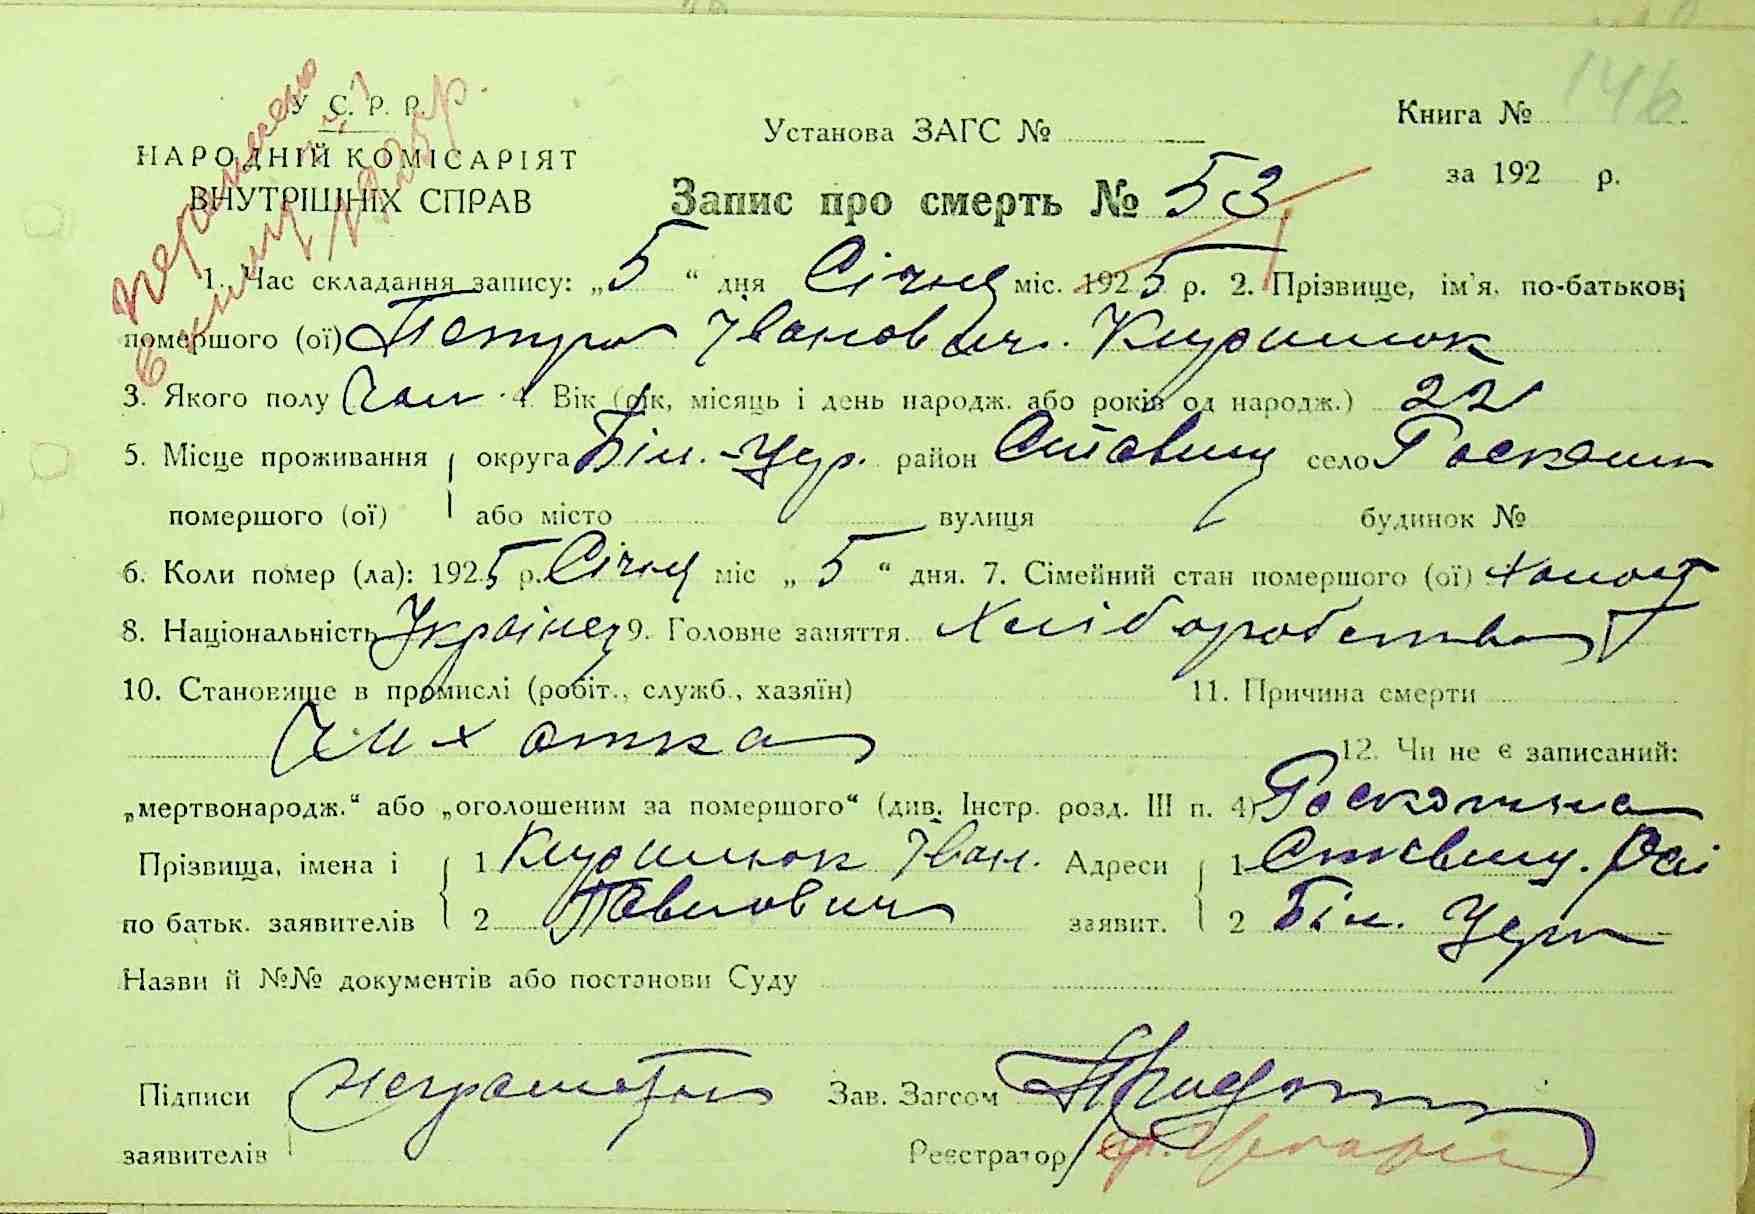 146
У С. Р. Р.
НАРОДНІЙ КОМІСАРІЯТ
ВНУТРІШНІХ СПРАВ
перенесено
в книгу 1925р.
Установа ЗАГС №
Книга №
за 192 р.
Запис про смерть № 53
1. Час складання запису: „5“ дня Січня міс. 1925 р. 2. Прізвище, ім'я, по-батькові
помершого (ої) Петро Іванович
3. Якого полу Чол 4. Вік (рік, місяць і день народж. або років од народж.) 22
5. Місце проживання округа Біл. Цер. район Ставищ село
помершого (ої) або місто вулиця будинок №
6. Коли помер (ла): 1925 р. Січня міс „5“ дня. 7. Сімейний стан помершого (ої) Холост
8. Національність Украінец 9. Головне заняття. Хліборобство
10. Становище в промислі (робіт., служб., хазяїн) 11. Причина смерти
Чихотка
12. Чи не є записаний:
„мертвонародж.“ або „оголошеним за помершого“ (див. Інстр. розд. III п. 4)
Прізвища, імена і 1 Іван. Адреси 1 Ставищ.
по батьк. заявителів 2 Павлович заявит. 2 Біл. Церк
Назви й №№ документів або постанови Суду
Підписи Неграмотн Зав. Загсом
заявителів Реєстратор